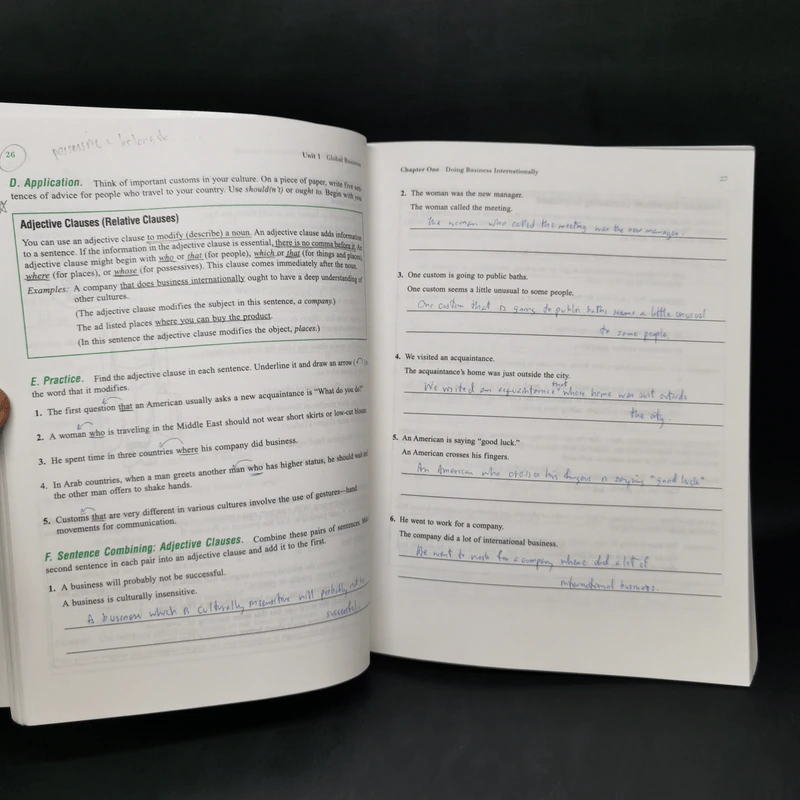 26
possessive = belongs
Unit 1 Global Business
D. Application. Think of important customs in your culture. On a piece of paper, write five sen-
tences of advice for people who travel to your country. Use should(n't) or ought to. Begin with you
Adjective Clauses (Relative Clauses)
You can use an adjective clause to modify (describe) a noun. An adjective clause adds information
to a sentence. If the information in the adjective clause is essential, there is no comma before it. An
adjective clause might begin with who or that (for people), which or that (for things and places),
where (for places), or whose (for possessives). This clause comes immediately after the noun.
Examples: A company that does business internationally ought to have a deep understanding of
other cultures.
(The adjective clause modifies the subject in this sentence, a company.)
The ad listed places where you can buy the product.
(In this sentence the adjective clause modifies the object, places.)
E. Practice. Find the adjective clause in each sentence. Underline it and draw an arrow
the word that it modifies.
1. The first question that an American usually asks a new acquaintance is "What do you do?"
2. A woman who is traveling in the Middle East should not wear short skirts or low-cut blouses
3. He spent time in three countries where his company did business.
4. In Arab countries, when a man greets another man who has higher status, he should wait until
the other man offers to shake hands.
5. Customs that are very different in various cultures involve the use of gestures—hand
movements for communication.
F. Sentence Combining: Adjective Clauses. Combine these pairs of sentences. Make
second sentence in each pair into an adjective clause and add it to the first.
1. A business will probably not be successful.
A business is culturally insensitive.
A business which is culturally insensitive will probably not be
successful.
Chapter One Doing Business Internationally
27
2. The woman was the new manager.
The woman called the meeting.
The woman who called the meeting was the new manager.
3. One custom is going to public baths.
One custom seems a little unusual to some people.
One custom that is going to public baths seems a little unusual
to some people.
4. We visited an acquaintance.
The acquaintance's home was just outside the city.
that
We visited an acquaintance whose home was just outside
the city
5. An American is saying "good luck."
An American crosses his fingers.
An American who crosses his fingers is saying "good luck"
6. He went to work for a company.
The company did a lot of international business.
He went to work for a company where did a lot of
international business.